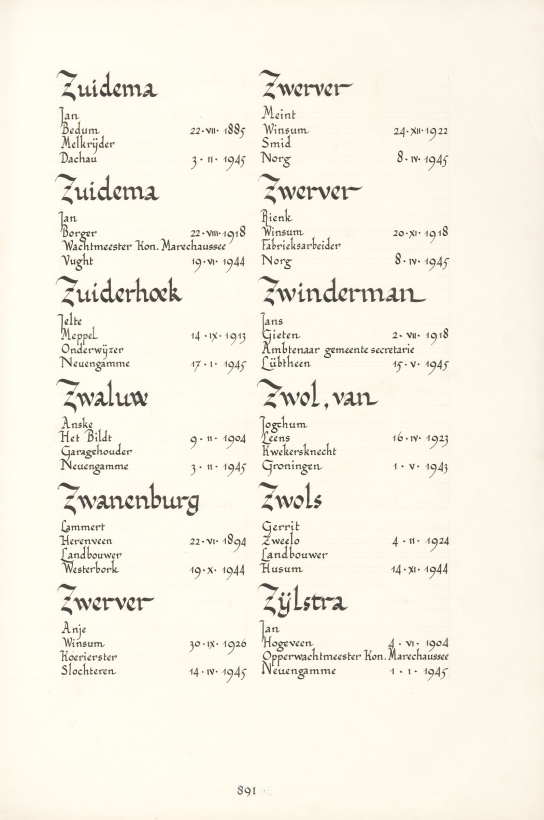 Zuidema
Jan
Bedum 22·VII·1885
Melkrijder
Dachau 3·II·1945
Zuidema
Jan
Borger 22·VIII·1918
Wachtmeester Kon. Marechaussee
Vught 19·VI·1944
Zuiderhoek
Jelte
Meppel 14·IX·1913
Onderwijzer
Neuengamme 17·1·1945
Zwaluw
Anske
Het Bildt 9·II·1904
Garagehouder
Neuengamme 3·II·1945
Zwanenburg
Lammert
Herenveen 22·VI·1894
Landbouwer
Westerbork 19·X·1944
Zwerver
Anje
Winsum 30·IX·1926
Koerierster
Slochteren 14·IV·1945
Zwerver
Meint
Winsum 24·XII·1922
Smid
Norg 8·IV·1945
Zwerver
Rienk
Winsum 20·XI·1918
Fabrieksarbeider
Norg 8·IV·1945
Zwinderman
Jans
Gieten 2·VII·1918
Ambtenaar gemeente secretarie
Lübtheen 15·V·1945
Zwol, van
Jogchum
Leens 16·IV·1923
Kwekersknecht
Groningen 1·V·1943
Zwols
Gerrit
Zweelo 4·II·1924
Landbouwer
Husum 14·XI·1944
Zijlstra
Jan
Hogeveen 4·VI·1904
Opperwachtmeester Kon. Marechaussee
Neuengamme 1·1·1945
891